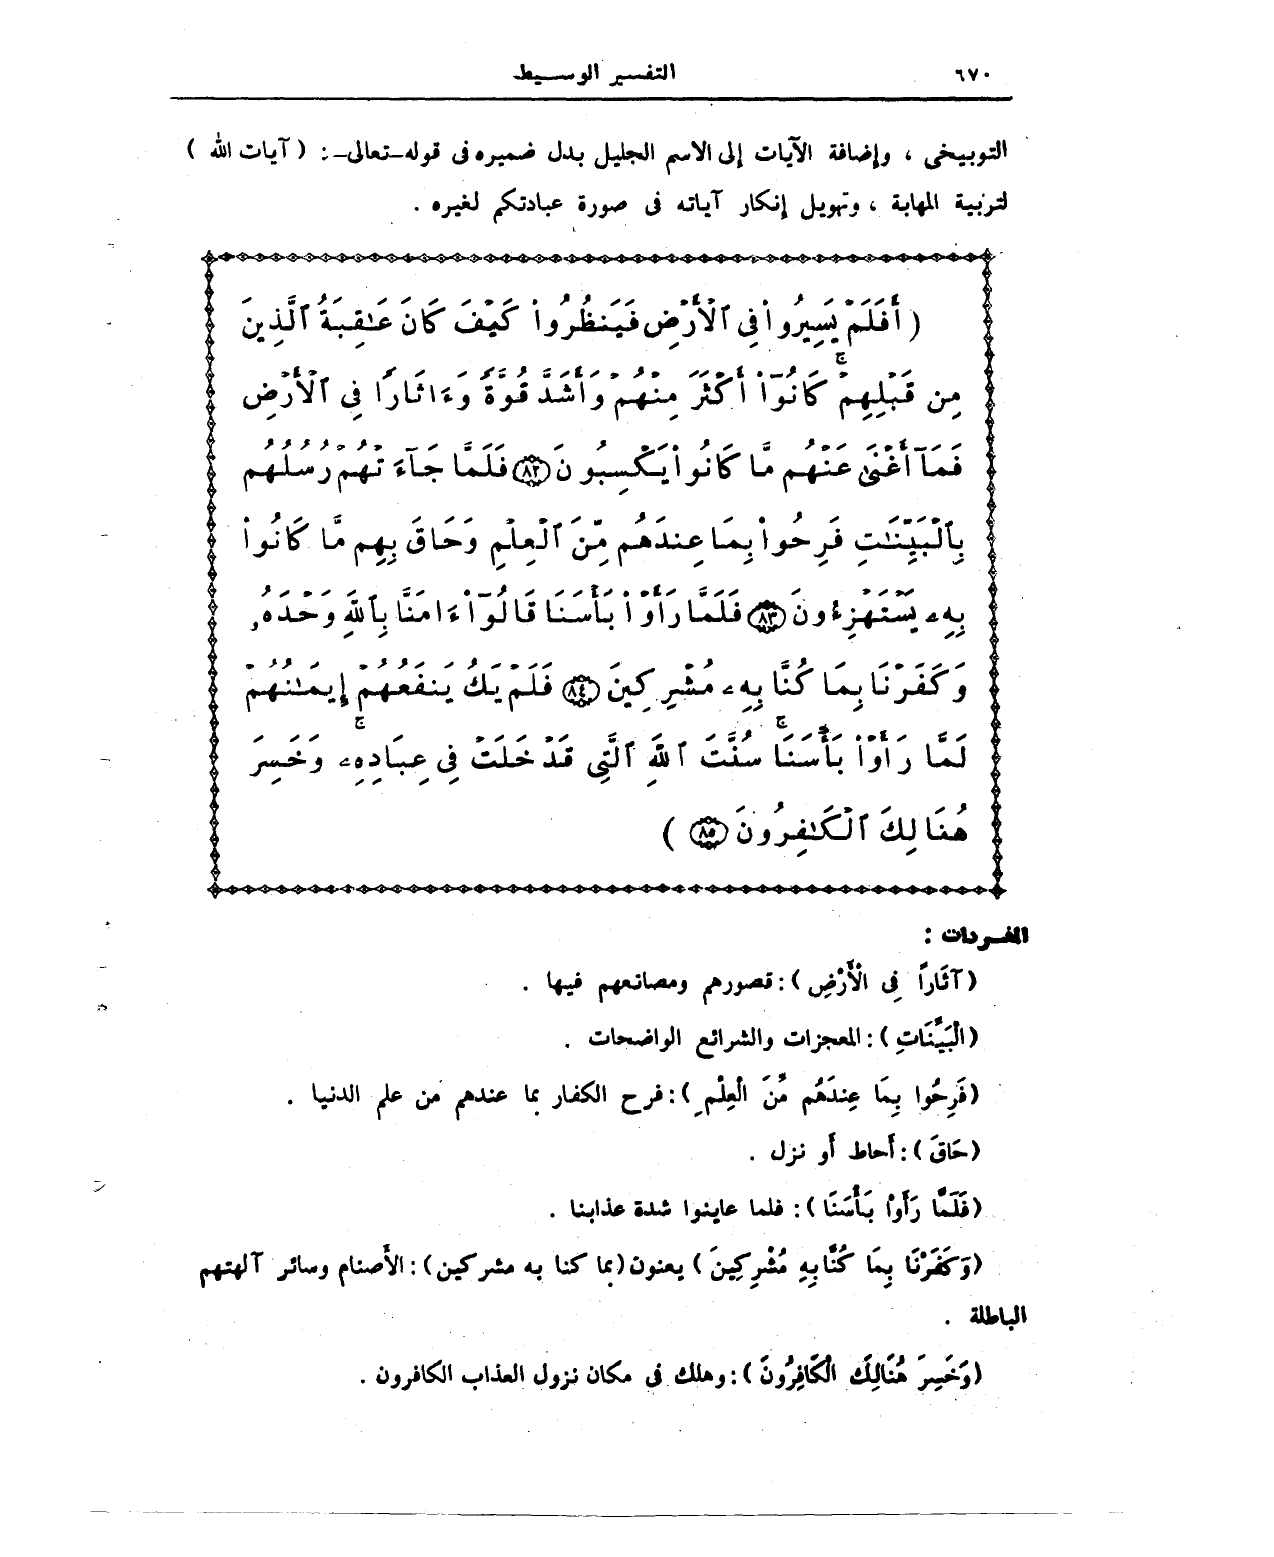 ٦٧٠
التفسير الوسيط
التوبيخى ، وإضافة الآيات إلى الاسم الجليل بدل ضميره فى قوله–تعالى–: ( آيات الله )
لتربية المهابة ، وتهويل إنكار آياته فى صورة عبادتكم لغيره .
( أَفَلَمْ يَسِيرُوا۟ فِى ٱلْأَرْضِ فَيَنظُرُوا۟ كَيْفَ كَانَ عَـٰقِبَةُ ٱلَّذِينَ
مِن قَبْلِهِمْ ۚ كَانُوٓا۟ أَكْثَرَ مِنْهُمْ وَأَشَدَّ قُوَّةً وَءَاثَارًا فِى ٱلْأَرْضِ
فَمَآ أَغْنَىٰ عَنْهُم مَّا كَانُوا۟ يَكْسِبُونَ ٨٢ فَلَمَّا جَآءَتْهُمْ رُسُلُهُم
بِٱلْبَيِّنَـٰتِ فَرِحُوا۟ بِمَا عِندَهُم مِّنَ ٱلْعِلْمِ وَحَاقَ بِهِم مَّا كَانُوا۟
بِهِۦ يَسْتَهْزِءُونَ ٨٣ فَلَمَّا رَأَوْا۟ بَأْسَنَا قَالُوٓا۟ ءَامَنَّا بِٱللَّهِ وَحْدَهُۥ
وَكَفَرْنَا بِمَا كُنَّا بِهِۦ مُشْرِكِينَ ٨٤ فَلَمْ يَكُ يَنفَعُهُمْ إِيمَـٰنُهُمْ
لَمَّا رَأَوْا۟ بَأْسَنَا ۖ سُنَّتَ ٱللَّهِ ٱلَّتِى قَدْ خَلَتْ فِى عِبَادِهِۦ ۖ وَخَسِرَ
هُنَالِكَ ٱلْكَـٰفِرُونَ ٨٥ )
المفردات :
(آثَاراً فِى الْأَرْضِ ) : قصورهم ومصانعهم فيها .
(الْبَيِّنَاتِ ) : المعجزات والشرائع الواضحات .
(فَرِحُوا بِمَا عِندَهُم مِّنَ الْعِلْمِ ) : فرح الكفار بما عندهم من علم الدنيا .
(حَاقَ ) : أحاط أو نزل .
(فَلَمَّا رَأَوْا بَأْسَنَا ) : فلما عاينوا شدة عذابنا .
(وَكَفَرْنَا بِمَا كُنَّا بِهِ مُشْرِكِينَ ) يعنون (بما كنا به مشركين) : الأصنام وسائر آلهتهم
الباطلة .
(وَخَسِرَ هُنَالِكَ الْكَافِرُونَ ) : وهلك فى مكان نزول العذاب الكافرون .